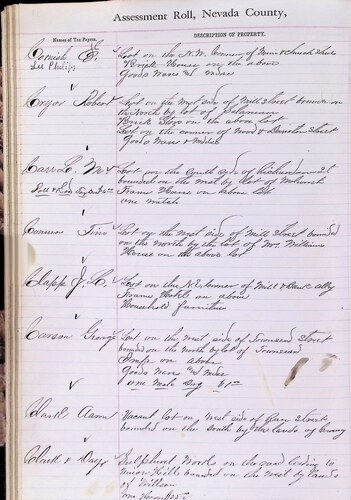 Assessment Roll, Nevada County,
Names of Tax Payers.
DESCRIPTION OF PROPERTY.
Cornish E. Lot on the N.W. Corner of Main & Church Street
See Philips Brick House on the above
Goods Wares and Mdse
Robert Lot on the West side of Mill Street bounded on
the North by lot of
Brick Store on the above Lot
Lot on the corner of Wood & Street
Goods Wares & Mdse
Carr L. Lot on the South side of Richardson St
bounded on the West by lot of
Frame House on above lot
one watch
Connor Lot on the West side of Mill Street bounded
on the north by the lot of Mrs Williams
House on the above lot
Clapp J. C. Lot on the N.E. corner of Mill & Bank Ally
Frame Hotel on above
Household Furniture
Carson George Lot on West side of Townsend Street
bounded on the North by lot of Townsend
Imps on above
Goods Wares and Mdse
one Male Dog
Clark Aaron Vacant lot on West side of Street
bounded on the South by the lands of
Clark & Days Sulphuret Works on the road leading to
Union Hill bounded on the West by lands
of Wilson